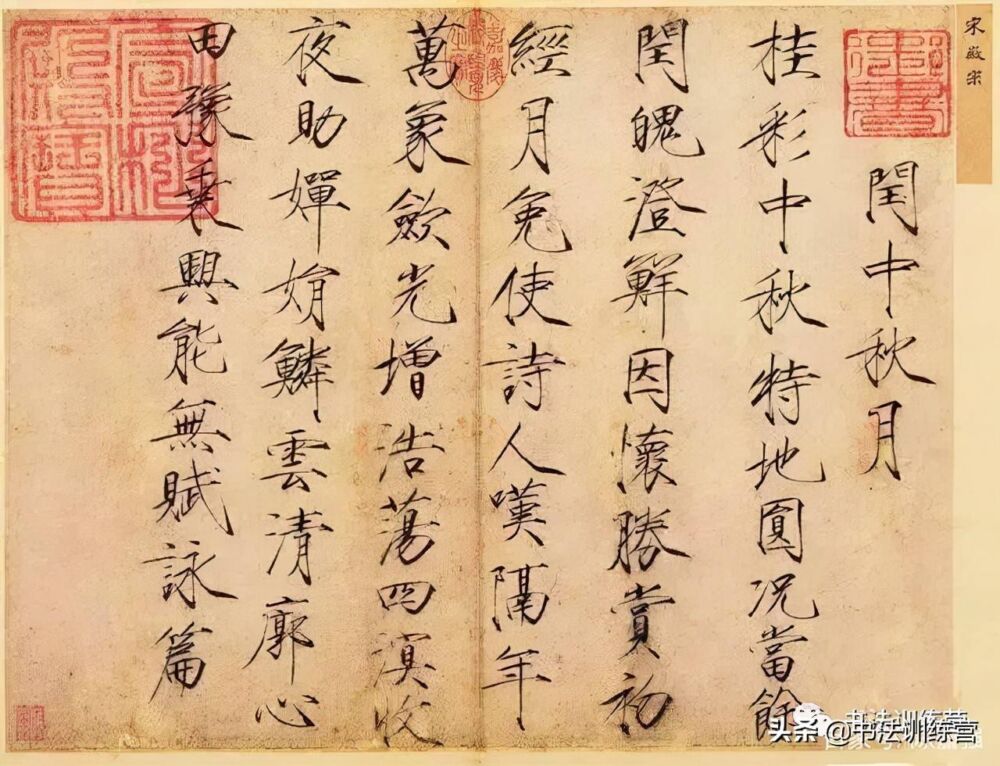 宋徽宗
閏中秋月
桂彩中秋特地圓況當餘
閏魄澄鮮因懷勝賞初
經月免使詩人嘆隔年
萬象歛光增浩蕩四溟收
夜助嬋娟鱗雲清廓心
田豫乘興能無賦詠篇
书法训练营
头条 @书法训练营